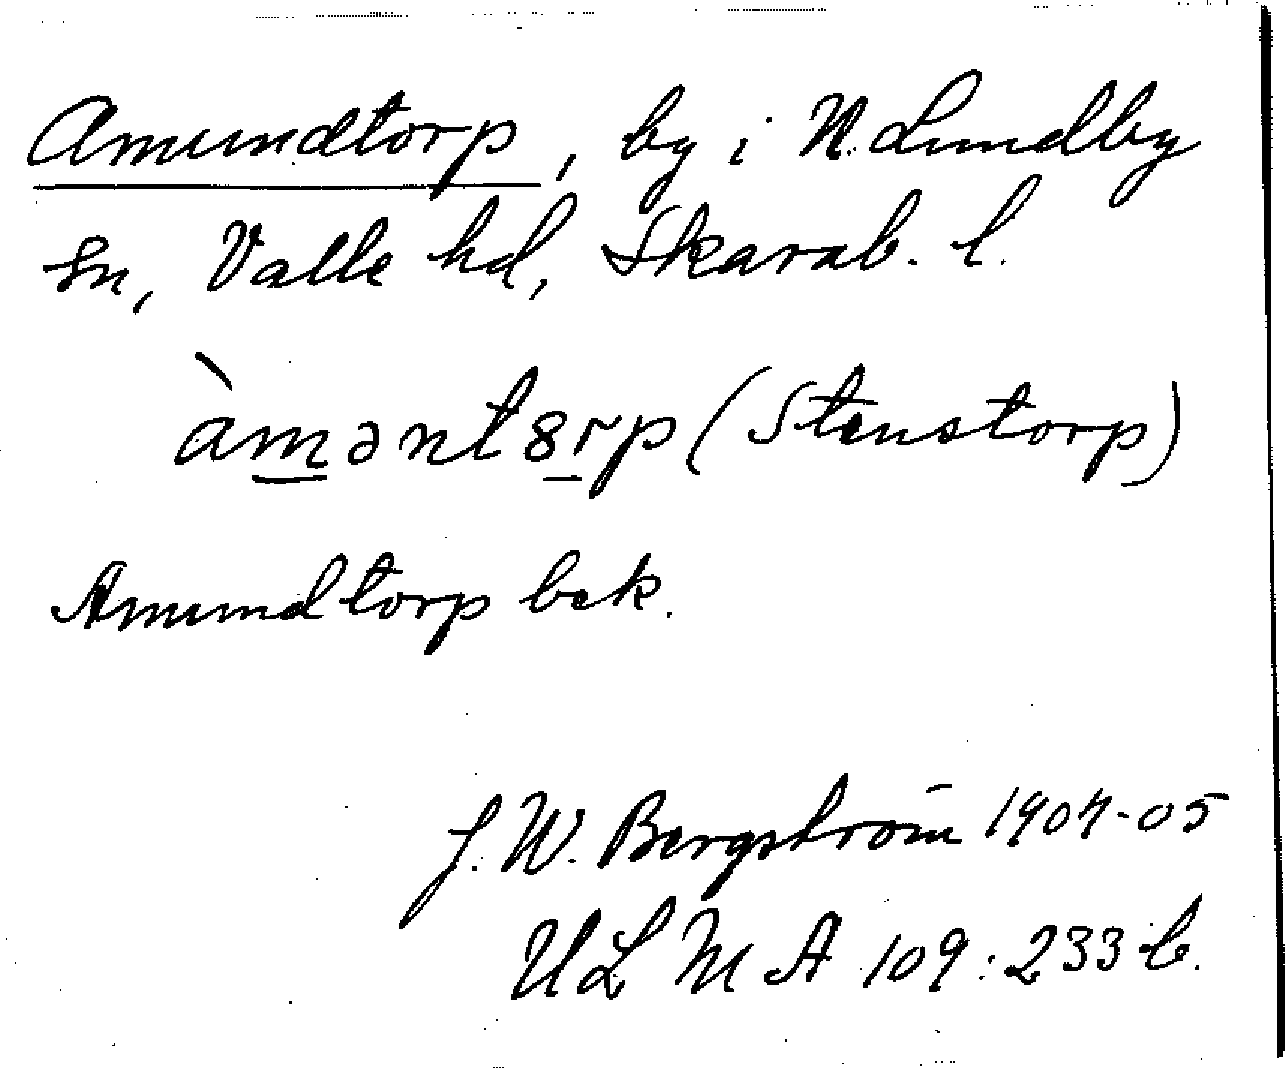 Amundtorp, by i N. Lundby
sn, Valle hd, Skarab. l.
àməntȣrp (Stenstorp)
Amundtorp bek.
J. W. Bergström 1904-05
ULMA 109:233 b.